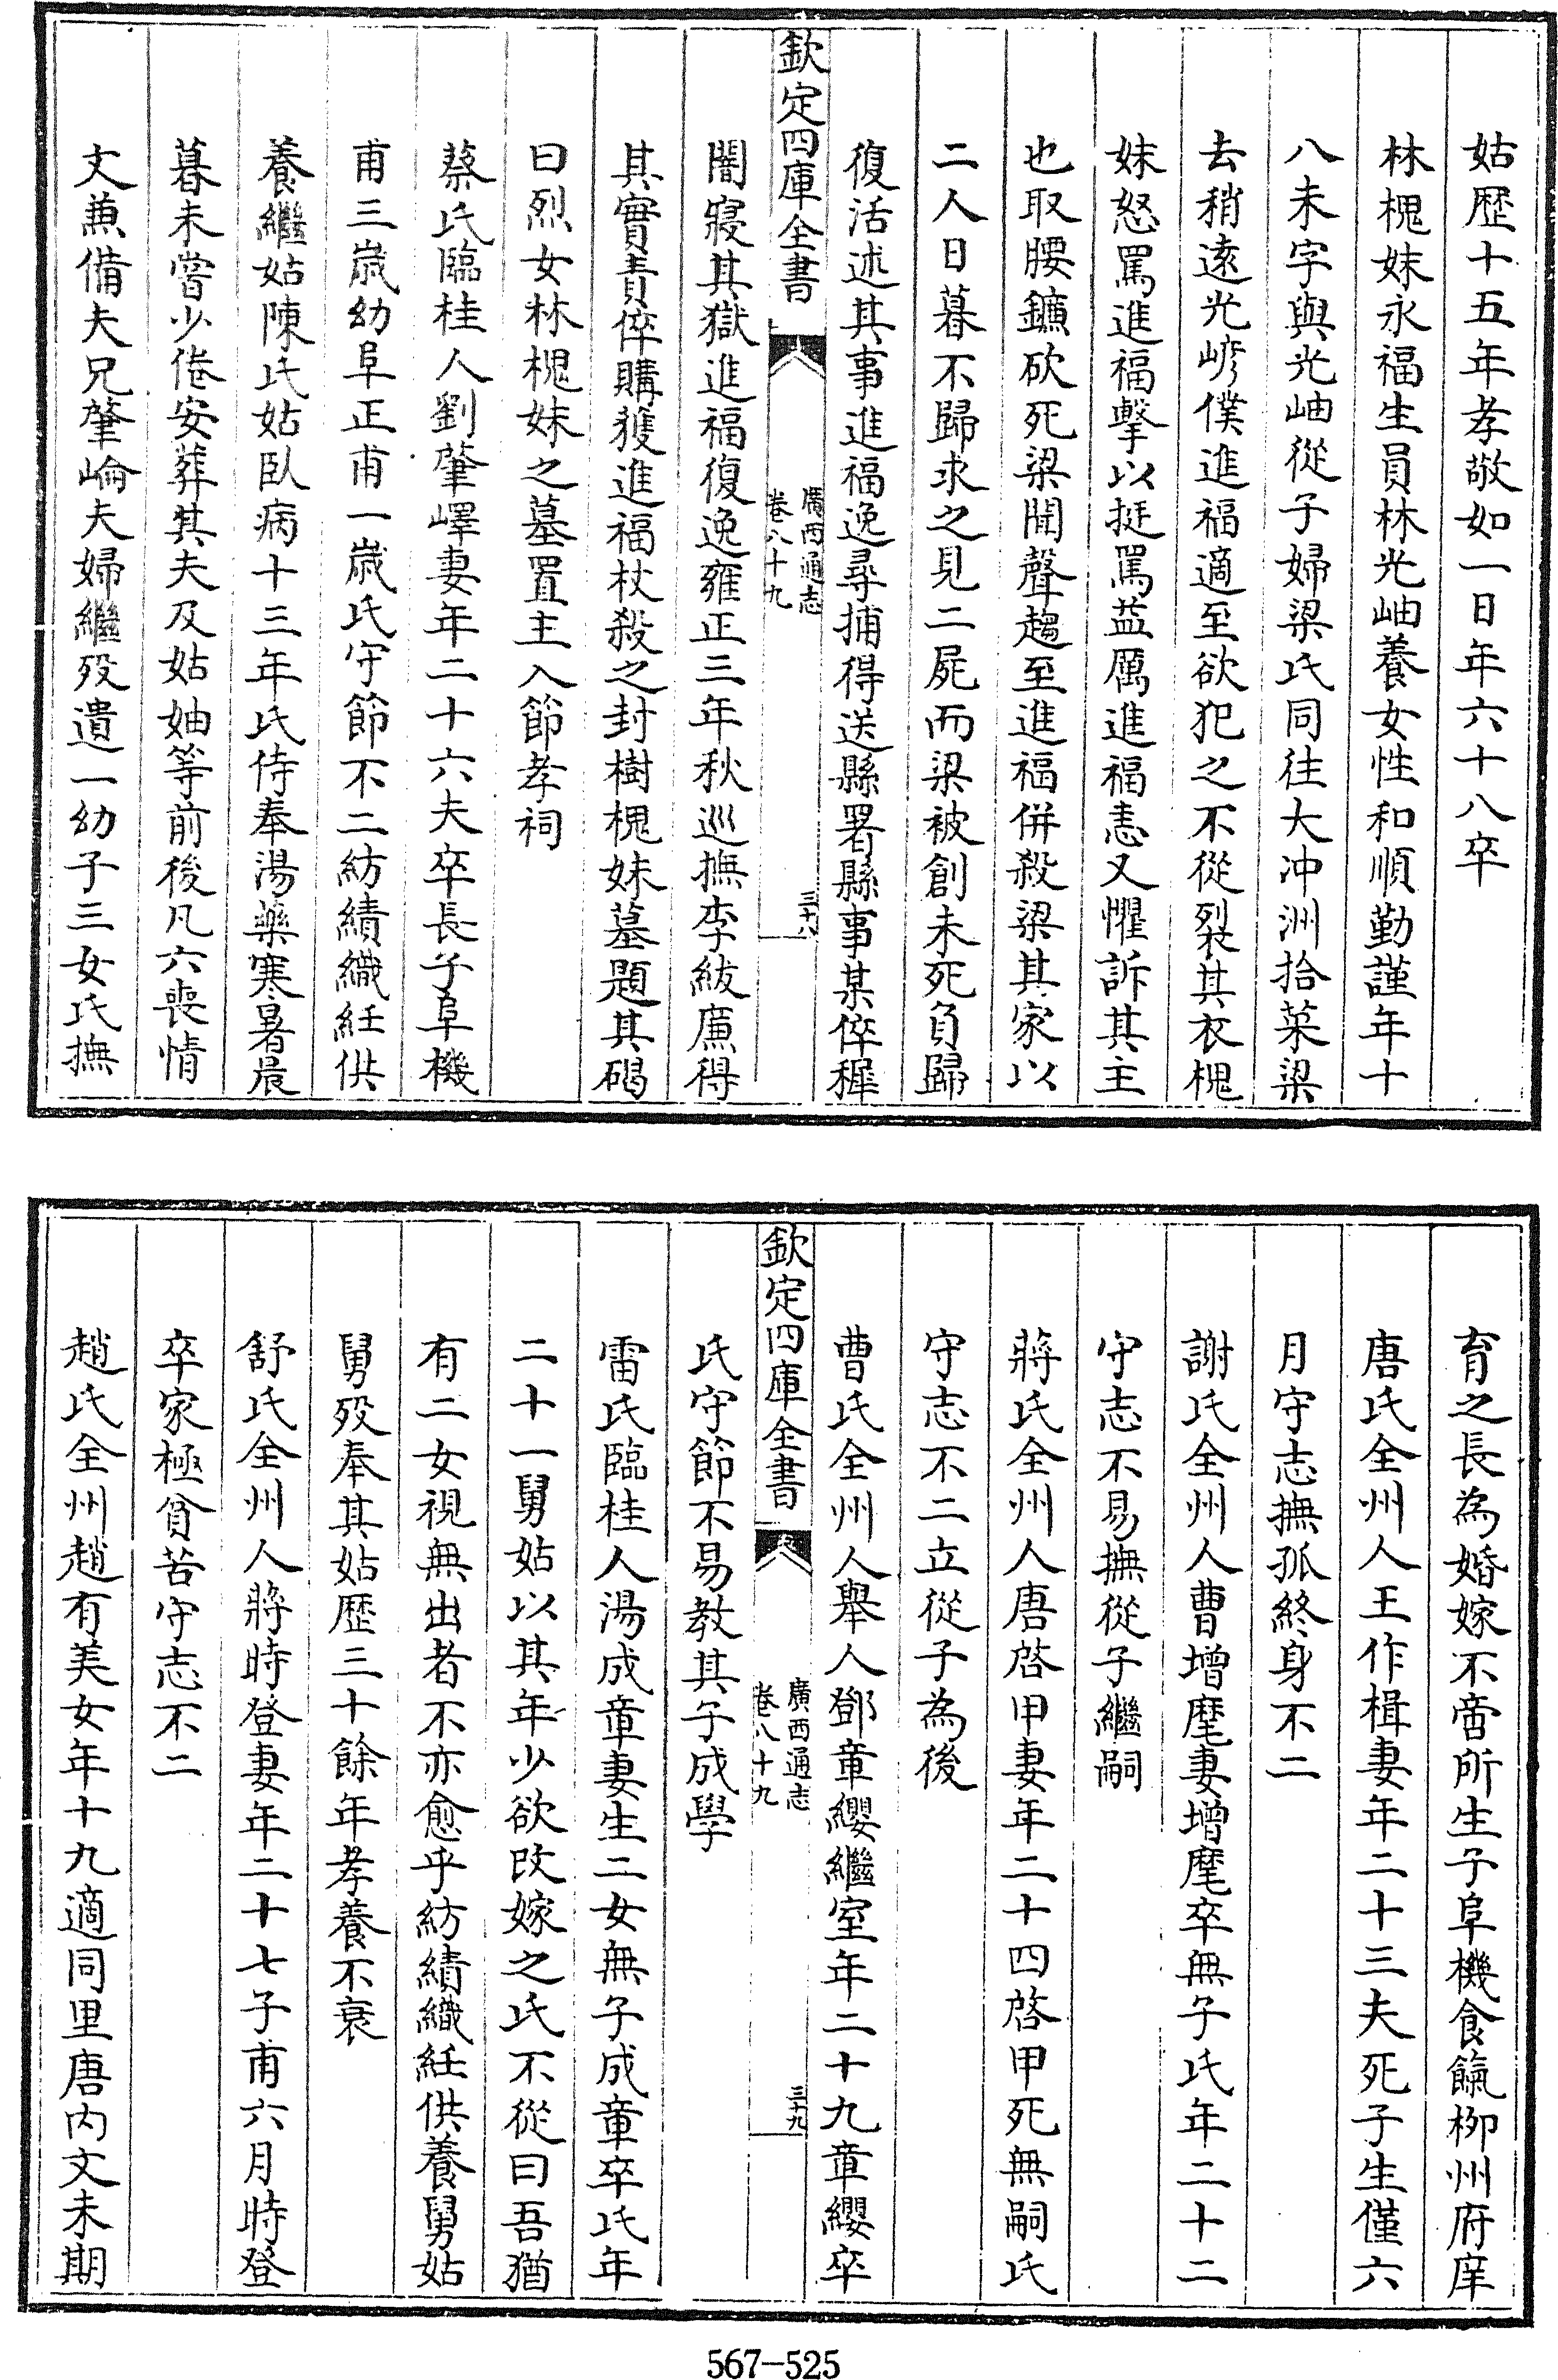 姑歷十五年孝敬如一日年六十八卒
林槐妹永福生員林光岫養女性和順勤謹年十
八未字與光岫從子婦梁氏同往大冲洲拾菜梁
去稍遠光㟽僕進福適至欲犯之不從裂其衣槐
妹怒罵進福擊以挺罵益厲進福恚又懼訴其主
也取腰鐮砍死梁聞聲趨至進福併殺梁其家以
二人日暮不歸求之見二屍而梁被創未死負歸
復活述其事進福逸尋捕得送縣署縣事某倅穉
欽定四庫全書
廣西通志
卷八十九
三十八
闇寢其獄進福復逸雍正三年秋巡撫李紱廉得
其實責倅購獲進福杖殺之封樹槐妹墓題其碣
曰烈女林槐妹之墓置主入節孝祠
蔡氏臨桂人劉肇嶧妻年二十六夫卒長子阜機
甫三歲幼阜正甫一歲氏守節不二紡績織紝供
養繼姑陳氏姑臥病十三年氏侍奉湯藥寒暑晨
暮未嘗少倦安葬其夫及姑妯等前後凡六喪情
文兼備夫兄肇崙夫婦繼歿遺一幼子三女氏撫
育之長為婚嫁不啻所生子阜機食餼柳州府庠
唐氏全州人王作楫妻年二十三夫死子生僅六
月守志撫孤終身不二
謝氏全州人曹增麾妻增麾卒無子氏年二十二
守志不易撫從子繼嗣
蔣氏全州人唐啓甲妻年二十四啓甲死無嗣氏
守志不二立從子為後
曹氏全州人舉人鄧章纓繼室年二十九章纓卒
欽定四庫全書
廣西通志
卷八十九
三十九
氏守節不易教其子成學
雷氏臨桂人湯成章妻生二女無子成章卒氏年
二十一舅姑以其年少欲改嫁之氏不從曰吾猶
有二女視無出者不亦愈乎紡績織紝供養舅姑
舅歿奉其姑歷三十餘年孝養不衰
舒氏全州人蔣時登妻年二十七子甫六月時登
卒家極貧苦守志不二
趙氏全州趙有美女年十九適同里唐內文未期
567-525